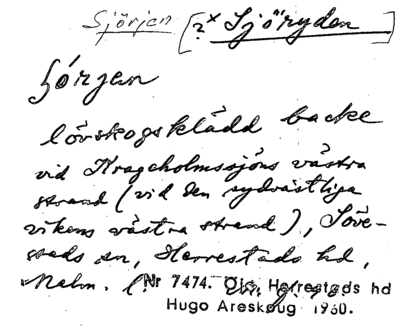 Sjörjen [?x Sjöryden]
Sörjen
lövskogsklädd backe
vid Krageholmssjöns västra
strand (vid den sydvästliga
vikens västra strand), Söve-
stads sn, Herrestads hd,
Malm. l.
Nr 7474. Herrestads hd
Hugo Areskoug 1960.